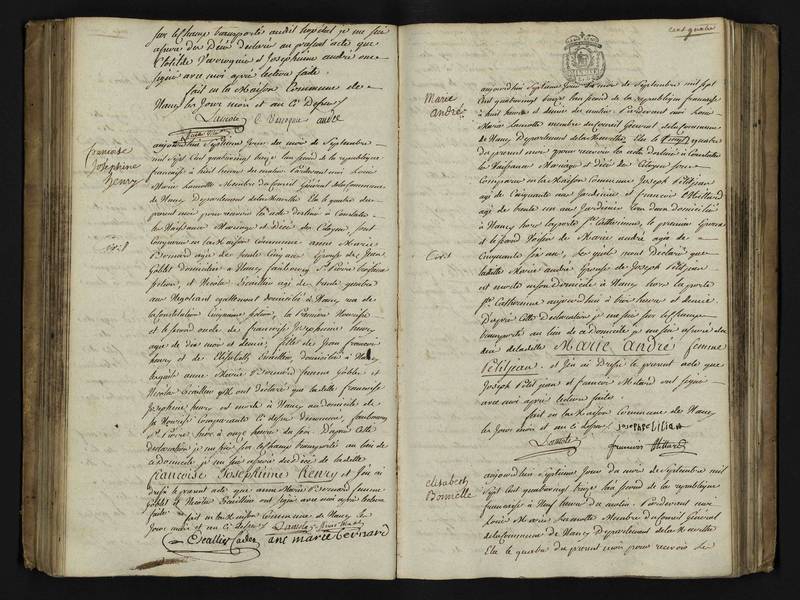 sur le champ transporté audit hopital je me suis
assuré du décè declaré au present acte que
Clotilde et Josephinne andré ont
signé avec moi après lecture faite.
fait en la Maison Commune de
Nancy les Jour mois et an Ci dessus
Lamotte andré
francoise
Josephine
henry
aujourdhui Septieme Jour du mois de Septembre
mil Sept Cent quatrevingt treize lan second de la republique
française à huit heures du matin Pardevant moi Louis
Marie Lamotte Membre du Conseil Général de la Commune
de Nancy Departement de la Meurthe Elu le quatre du
present mois pour recevoir les actes destinés à Constater
les Naissance Mariage et décè des Citoyens, sont
Comparus en la Maison commune anne Marie
Bernard agée de trente Cinq ans Epouse de Jean
Goblet domiciliée à Nancy faubourg St Pierre
et Nicolas Ecaillier agé de trente quatre
ans Negociant egallement domicilié à Nancy rue de
la Constitution la Premiere Nourrice
et le second oncle de francoise Josephinne henry
agée de dix mois et demie, fille de Jean francois
henry et de Elisabeth domiciliés à Nancy
lesquels anne Marie Bernard femme Goblet et
Nicolas Ecaillier m'ont déclaré que ladite francoise
Josephinne henry est morte à Nancy au domicile de
sa Nourrice Comparante Ci dessus denommée, faubourg
St Pierre hier à onze heures du soir. D'après cette
déclaration je me suis sur le champ transporté au lieu de
ce domicile je me suis assuré du décè de ladite
francoise Josephinne Henry et j'en ai
dressé le present acte que anne Marie Bernard femme
Goblet et Nicolas Ecaillier ont signé avec moi après lecture
faite.
fait en la Maison Commune de Nancy les
Jour mois et an Ci dessus Lamotte
Ecallier Cadet anne marie bernard
cent quatre
Marie
andré
aujourdhui Septieme Jour du mois de Septembre mil Sept
Cent quatrevingt treize lan second de la republique francaise
à huit heures et demie du matin. Pardevant moi Louis
Marie Lamotte membre du Conseil Général de la Commune
de Nancy Departement de la Meurthe Elu le quatre
du present mois pour recevoir les actes destinés à Constater
les Naissance Mariage et décè des Citoyens sont
Comparus en la Maison Commune Joseph Petitjean
agé de Cinquante ans Jardinier et francois Millard
agé de trente un ans Jardinier tous deux domiciliés
à Nancy hors la porte Ste Catherinne, le premier Epoux
et le second Voisin de Marie andré agée de
Cinquante six ans, lesquels mont Declaré que
ladite Marie andré Epouse de Joseph Petitjean
est morte en son domicile à Nancy hors la porte
Ste Catherinne aujourdhui à trois heures et demie.
D'après cette Declaration je me suis sur le champ
transporté au lieu de ce domicile je me suis assuré du
decè de ladite Marie andré femme
Petitjean. et j'en ai dressé le present acte que
Joseph Petitjean et francois Millard ont signé
avec moi après lecture faite.
fait en la Maison commune de Nancy
les Jour mois et an ci dessus
Lamotte francois Millard
Elisabeth
aujourdhui Septieme Jour du mois de Septembre mil
Sept Cent quatrevingt treize lan second de la republique
francaise à Neuf heures du matin. Pardevant moi
Louis Marie Lamotte Membre du Conseil Général
de la Commune de Nancy Departement de la Meurthe
Elu le quatre du present mois pour recevoir les